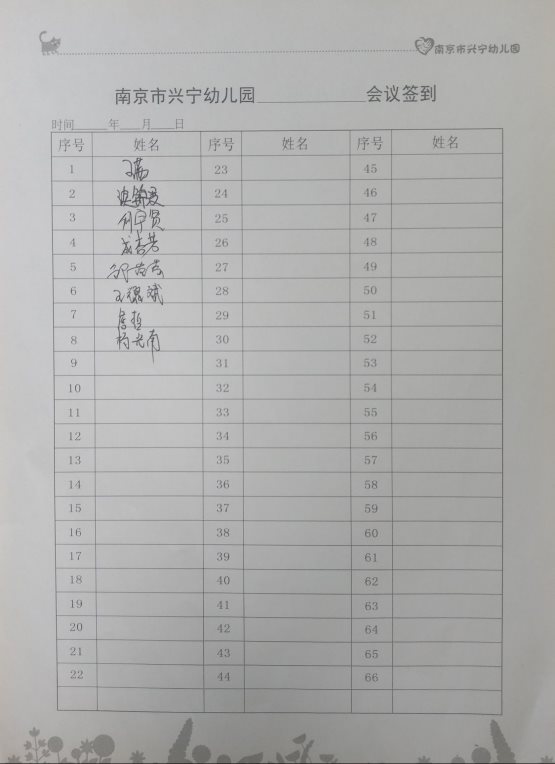 南京市兴宁幼儿园
南京市兴宁幼儿园 会议签到
时间 年 月 日
序号 姓名 序号 姓名 序号 姓名
1 23 45
2 24 46
3 25 47
4 成杏芳 26 48
5 27 49
6 28 50
7 唐哲 29 51
8 杨光南 30 52
9 31 53
10 32 54
11 33 55
12 34 56
13 35 57
14 36 58
15 37 59
16 38 60
17 39 61
18 40 62
19 41 63
20 42 64
21 43 65
22 44 66